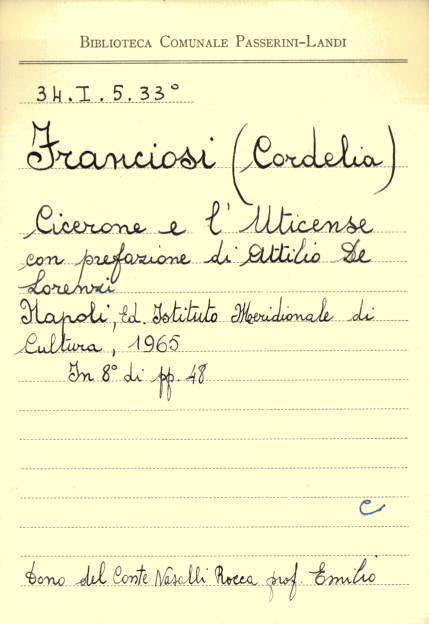 BIBLIOTECA COMUNALE PASSERINI-LANDI
34.I.5.33°
Franciosi (Cordelia)
Cicerone e l'Uticense
con prefazione di Attilio De
Lorenzi
Napoli, Ed. Istituto Meridionale di
Cultura, 1965
In 8° di pp. 48
C
Dono del Conte Nasalli Rocca prof. Emilio